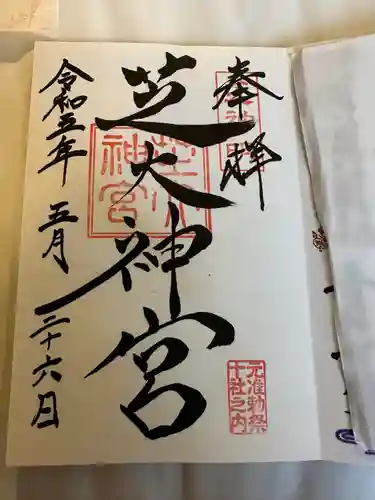 奉拝
芝大神宮
芝大
神宮
元准勅祭
十社之内
令和五年 五月 二十六日